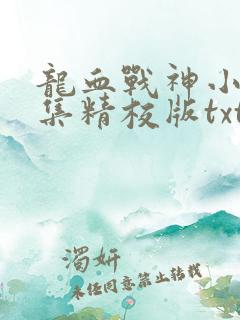 龍血戰神小
集精校版txt
濁妍
未经同意禁止转载